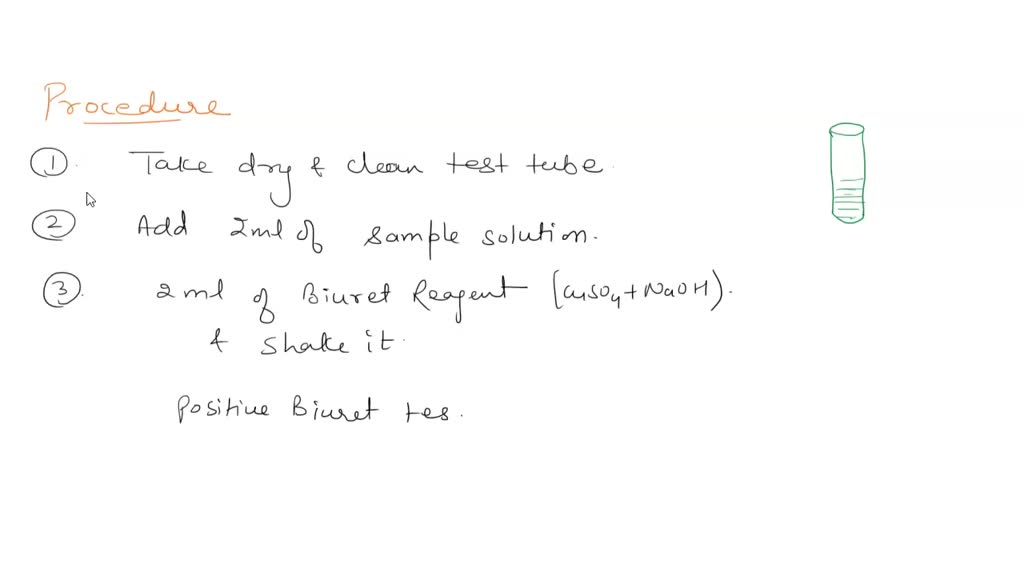 Procedure
1. Take dry & clean test tube.
2 Add 2ml of sample solution.
3. 2 ml of Biuret Reagent (CuSO4 + NaOH).
& shake it.
Positive Biuret tes.